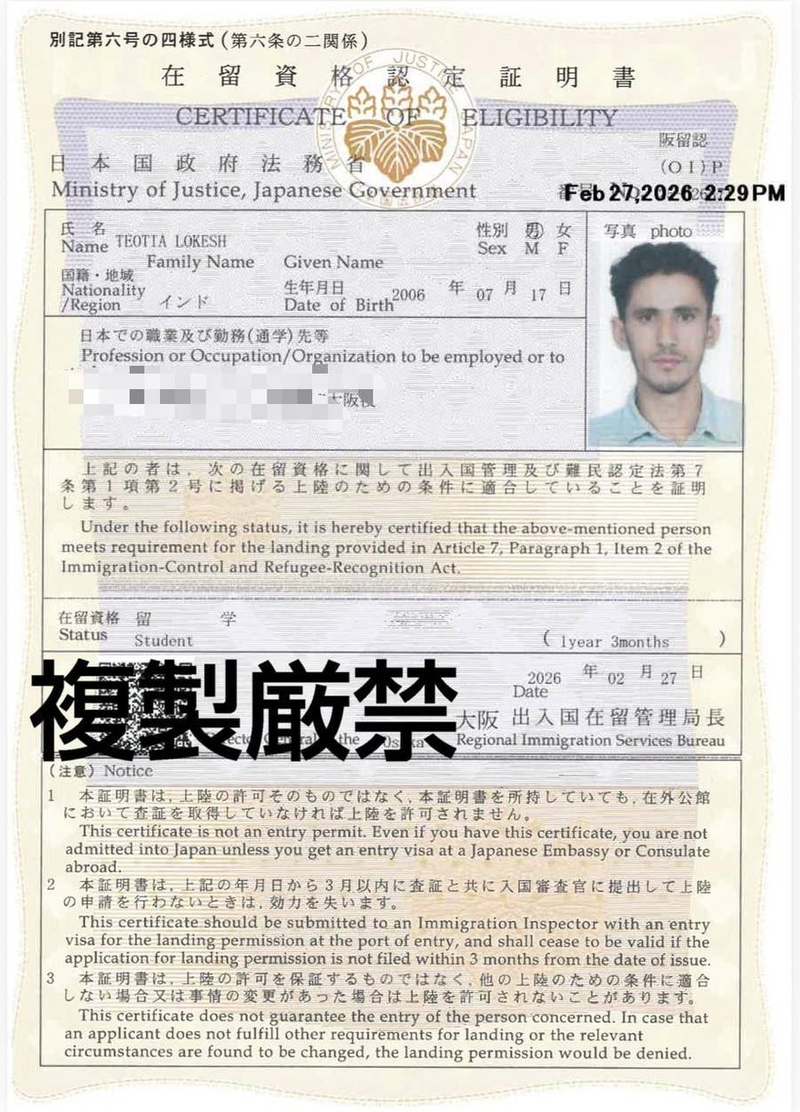 別記第六号の四様式(第六条の二関係)
在留資格認定証明書
CERTIFICATE OF ELIGIBILITY
MINISTRY OF JUSTICE JAPAN
阪留認
(OI)P
日本国政府法務省
Ministry of Justice, Japanese Government
Feb 27,2026 2:29PM
氏名
Name TEOTIA LOKESH
Family Name Given Name
性別 男 女
Sex M F
写真 photo
国籍・地域
Nationality
/Region インド
生年月日 2006 年 07 月 17 日
Date of Birth
日本での職業及び勤務(通学)先等
Profession or Occupation/Organization to be employed or to
大阪校
上記の者は、次の在留資格に関して出入国管理及び難民認定法第7
条第1項第2号に掲げる上陸のための条件に適合していることを証明
します。
Under the following status, it is hereby certified that the above-mentioned person
meets requirement for the landing provided in Article 7, Paragraph 1, Item 2 of the
Immigration-Control and Refugee-Recognition Act.
在留資格 留学
Status Student
( 1year 3months )
2026 年 02 月 27 日
Date
複製厳禁
大阪 出入国在留管理局長
General the Osaka Regional Immigration Services Bureau
(注意) Notice
1 本証明書は、上陸の許可そのものではなく、本証明書を所持していても、在外公館
において査証を取得していなければ上陸を許可されません。
This certificate is not an entry permit. Even if you have this certificate, you are not
admitted into Japan unless you get an entry visa at a Japanese Embassy or Consulate
abroad.
2 本証明書は、上記の年月日から3月以内に査証と共に入国審査官に提出して上陸
の申請を行わないときは、効力を失います。
This certificate should be submitted to an Immigration Inspector with an entry
visa for the landing permission at the port of entry, and shall cease to be valid if the
application for landing permission is not filed within 3 months from the date of issue.
3 本証明書は、上陸の許可を保証するものではなく、他の上陸のための条件に適合
しない場合又は事情の変更があった場合は上陸を許可されないことがあります。
This certificate does not guarantee the entry of the person concerned. In case that
an applicant does not fulfill other requirements for landing or the relevant
circumstances are found to be changed, the landing permission would be denied.